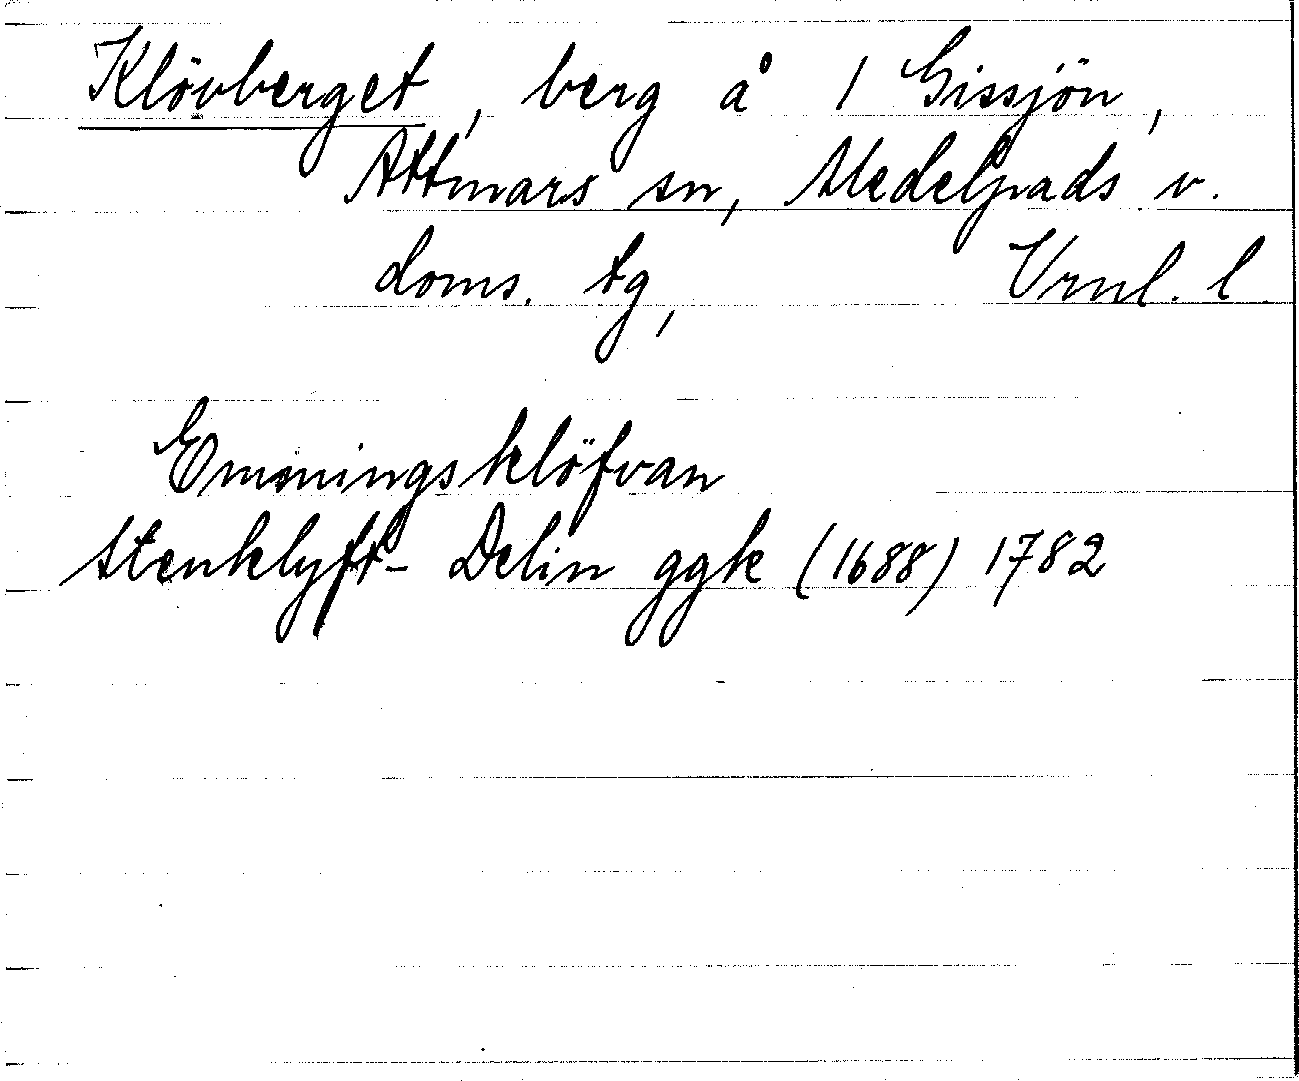 Klövberget, berg å 1 Gissjön,
Attmars sn, Medelpads v.
doms. tg, Vrnl. l
Emmingsklöfvan
Stenklyft- Delin ggk (1688) 1782